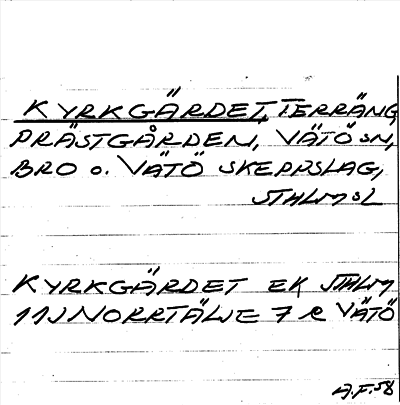 KYRKGÄRDET, TERRÄNG,
PRÄSTGÅRDEN, VÄTÖ SN,
BRO o. VÄTÖ SKEPPSLAG,
STHLMSL
KYRKGÄRDET EK STHLM
11J NORRTÄLJE 7 R VÄTÖ
A.F.58